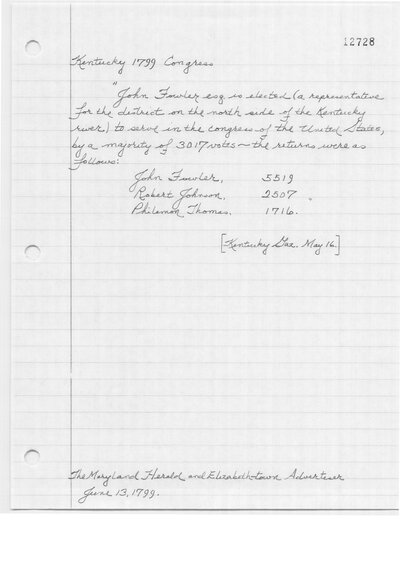 12728
Kentucky 1799 Congress
"John Fowler esq is elected (a representative
for the district on the north side of the Kentucky
river) to serve in the congress of the United States,
by a majority of 3017 votes — the returns were as
follows:
John Fowler, 5519
Robert Johnson, 2507.
Philemon Thomas. 1716.
[Kentucky Gaz. May 16.]
The Maryland Herald and Elizabeth-town Advertiser
June 13, 1799.